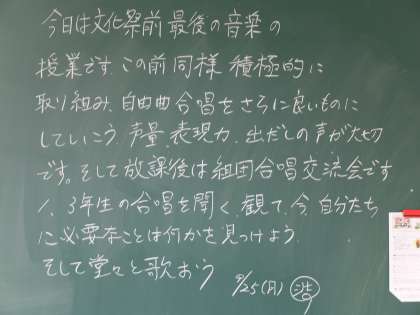 今日は文化祭前最後の音楽の
授業です。この前同様 積極的に
取り組み、自由曲合唱をさらに良いものに
していこう。声量、表現力、出だしの声が大切
です。そして放課後は組団合唱交流会です
1、3年生の合唱を聞く、観て、今、自分たち
に必要なことは何かを見つけよう。
そして堂々と歌おう 9/25(月) 浩